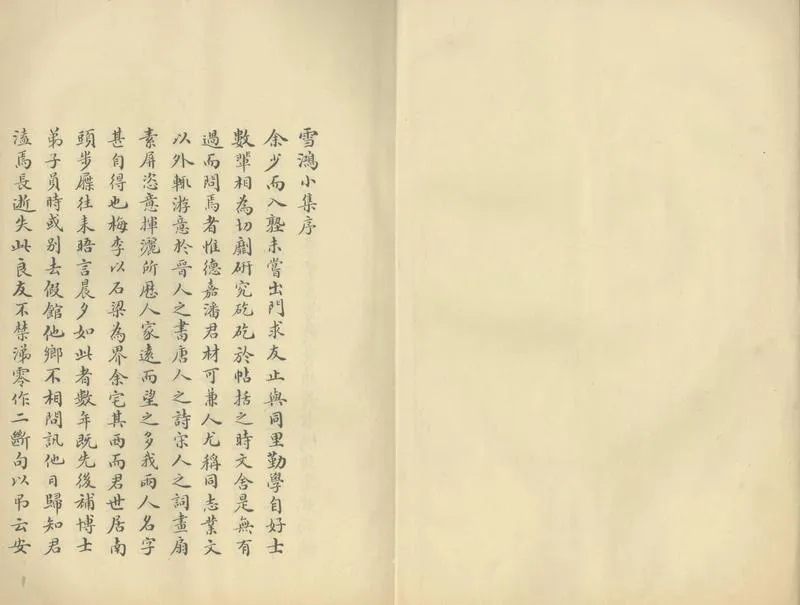 雪鴻小集序
余少而入塾未嘗出門求友止與同里勤學自好士
數輩相為切劘研究矻矻於帖括之時文舍是無有
過而問焉者惟德嘉潘君材可兼人尤稱同志業文
以外輒游意於晉人之書唐人之詩宋人之詞畫扇
素屏恣意揮灑所歷人家遠而望之多我兩人名字
甚自得也梅李以石梁為界余宅其西而君世居南
頭步屧往來晤言晨夕如此者數年既先後補博士
弟子員時或別去假館他鄉不相問訊他日歸知君
溘焉長逝失此良友不禁涕零作二斷句以弔云安